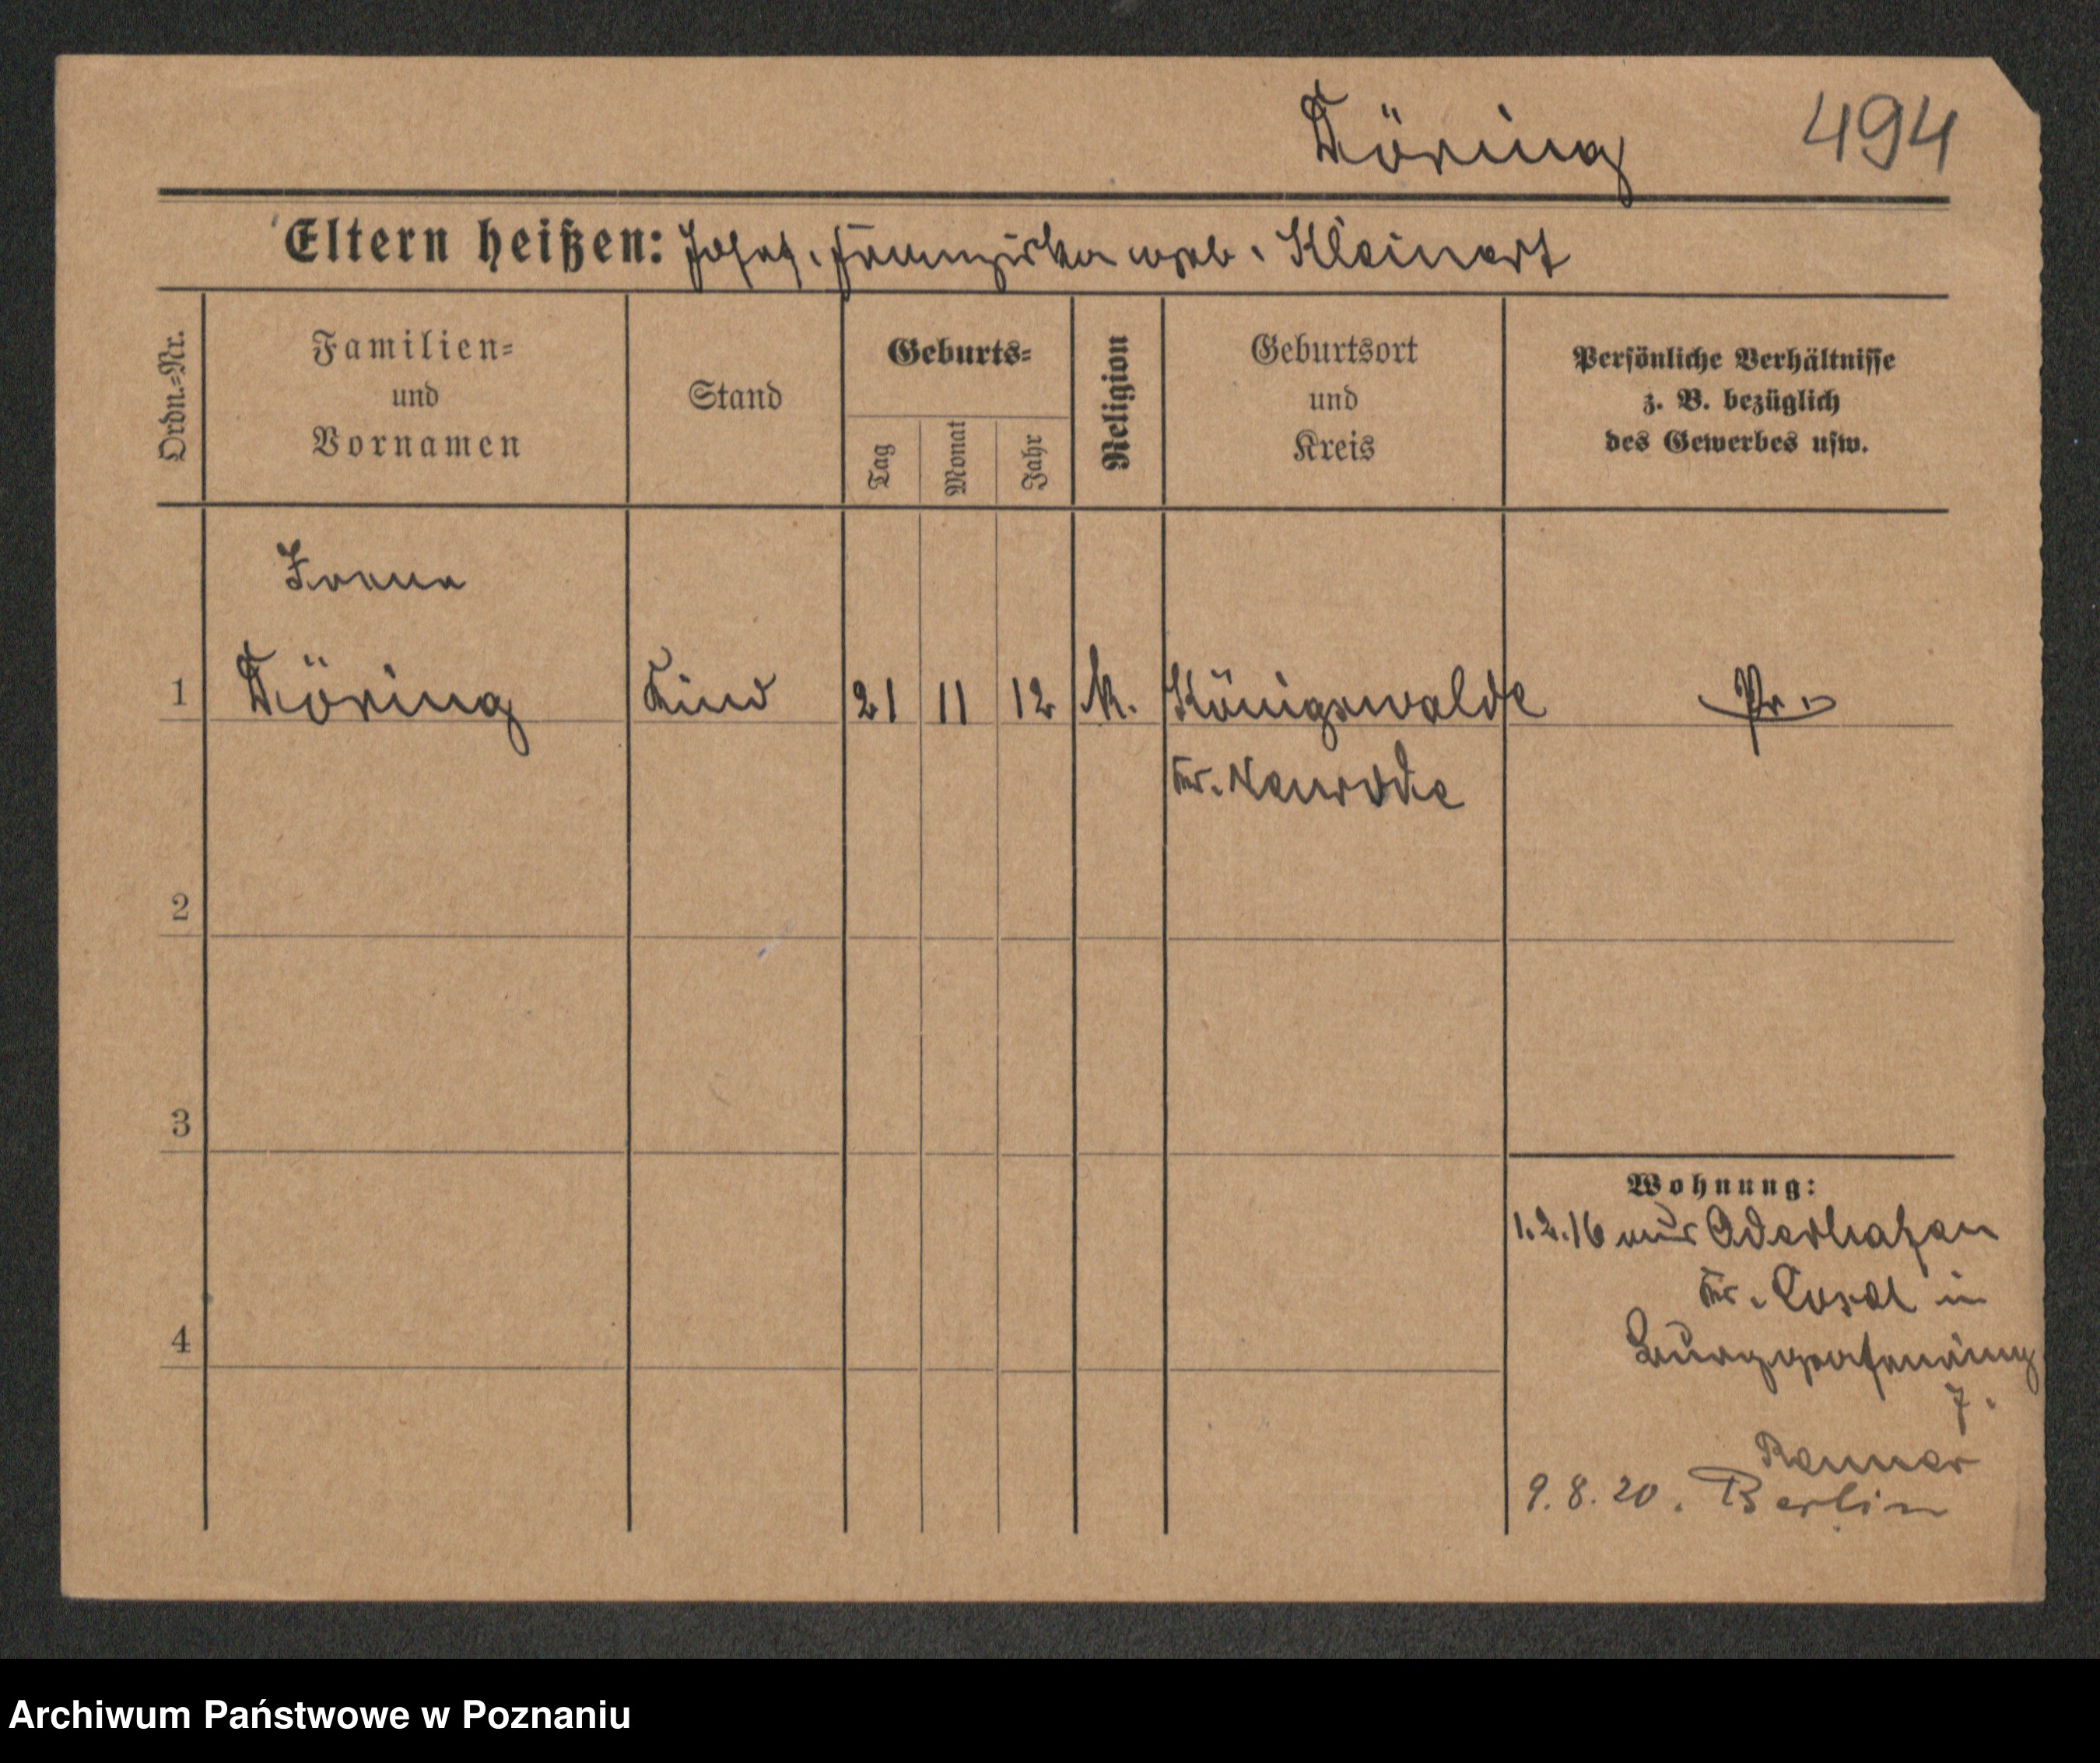 Döring 494
Eltern heißen: Josef, Franziska geb. Kleinert
Ordn.-Nr.
Familien-
und
Vornamen
Stand
Geburts-
Tag
Monat
Jahr
Religion
Geburtsort
und
Kreis
Persönliche Verhältnisse
z. B. bezüglich
des Gewerbes usw.
1 Döring Kind 21 11 12 k. Königswalde Pr.
Kr. Neurode
2
3
4
Wohnung:
1.2.16 aus Oderhafen
Kr. Cosel in
7.
Renner
9.8.20. Berlin
Archiwum Państwowe w Poznaniu